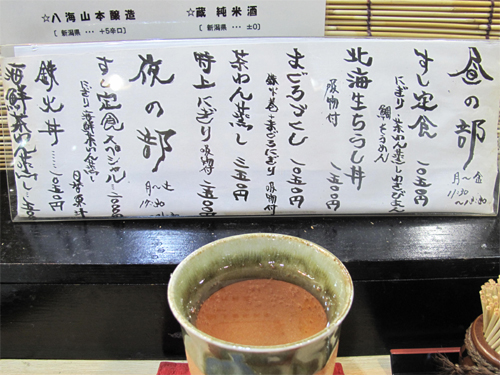 ☆八海山本醸造
[ 新潟県 ・・・ +5辛口 ]
☆蔵 純米酒
[ 新潟県 ・・・ ±0 ]
昼の部
月〜金
11:30
すし定食 一〇五〇円
にぎり・茶わん蒸し
北海生ちらし丼
吸物付
一〇五〇円
まぐろづくし
鉄火巻・まぐろにぎり 吸物付
一〇五〇円
茶わん蒸し 三五〇円
特上にぎり 吸物付
夜の部
月〜土
17:30
すし定食スペシャル
にぎり・海鮮茶わん蒸し
鉄火丼 一〇五〇円
海鮮茶わん蒸し